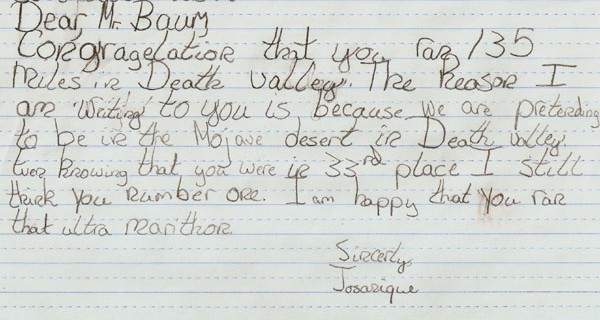 Dear Mr. Baum
Congragelation that you ran 135
miles in Death valley. The Reason I
am writing to you is because we are pretending
to be in the Mojave desert in Death valley.
Even knowing that you were in 33rd place I still
think you number one. I am happy that you ran
that ultra marithon
Sincerly,
Josanique